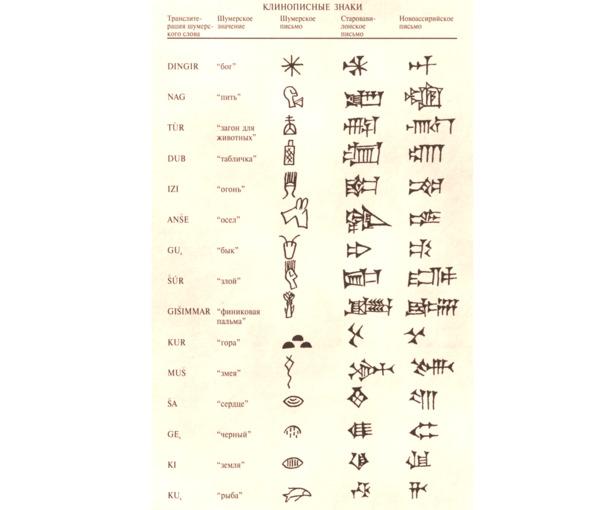 КЛИНОПИСНЫЕ ЗНАКИ
Транслите- Шумерское Шумерское Старовави- Новоассирийское
рация шумерс- значение письмо лонское письмо
кого слова письмо
DINGIR “бог”
NAG “пить”
TÙR “загон для
животных”
DUB “табличка”
IZI “огонь”
ANŠE “осел”
GU₄ “бык”
ŠÚR “злой”
GIŠIMMAR “финиковая
пальма”
KUR “гора”
MUŠ “змея”
ŠA “сердце”
“черный”
KI “земля”
“рыба”